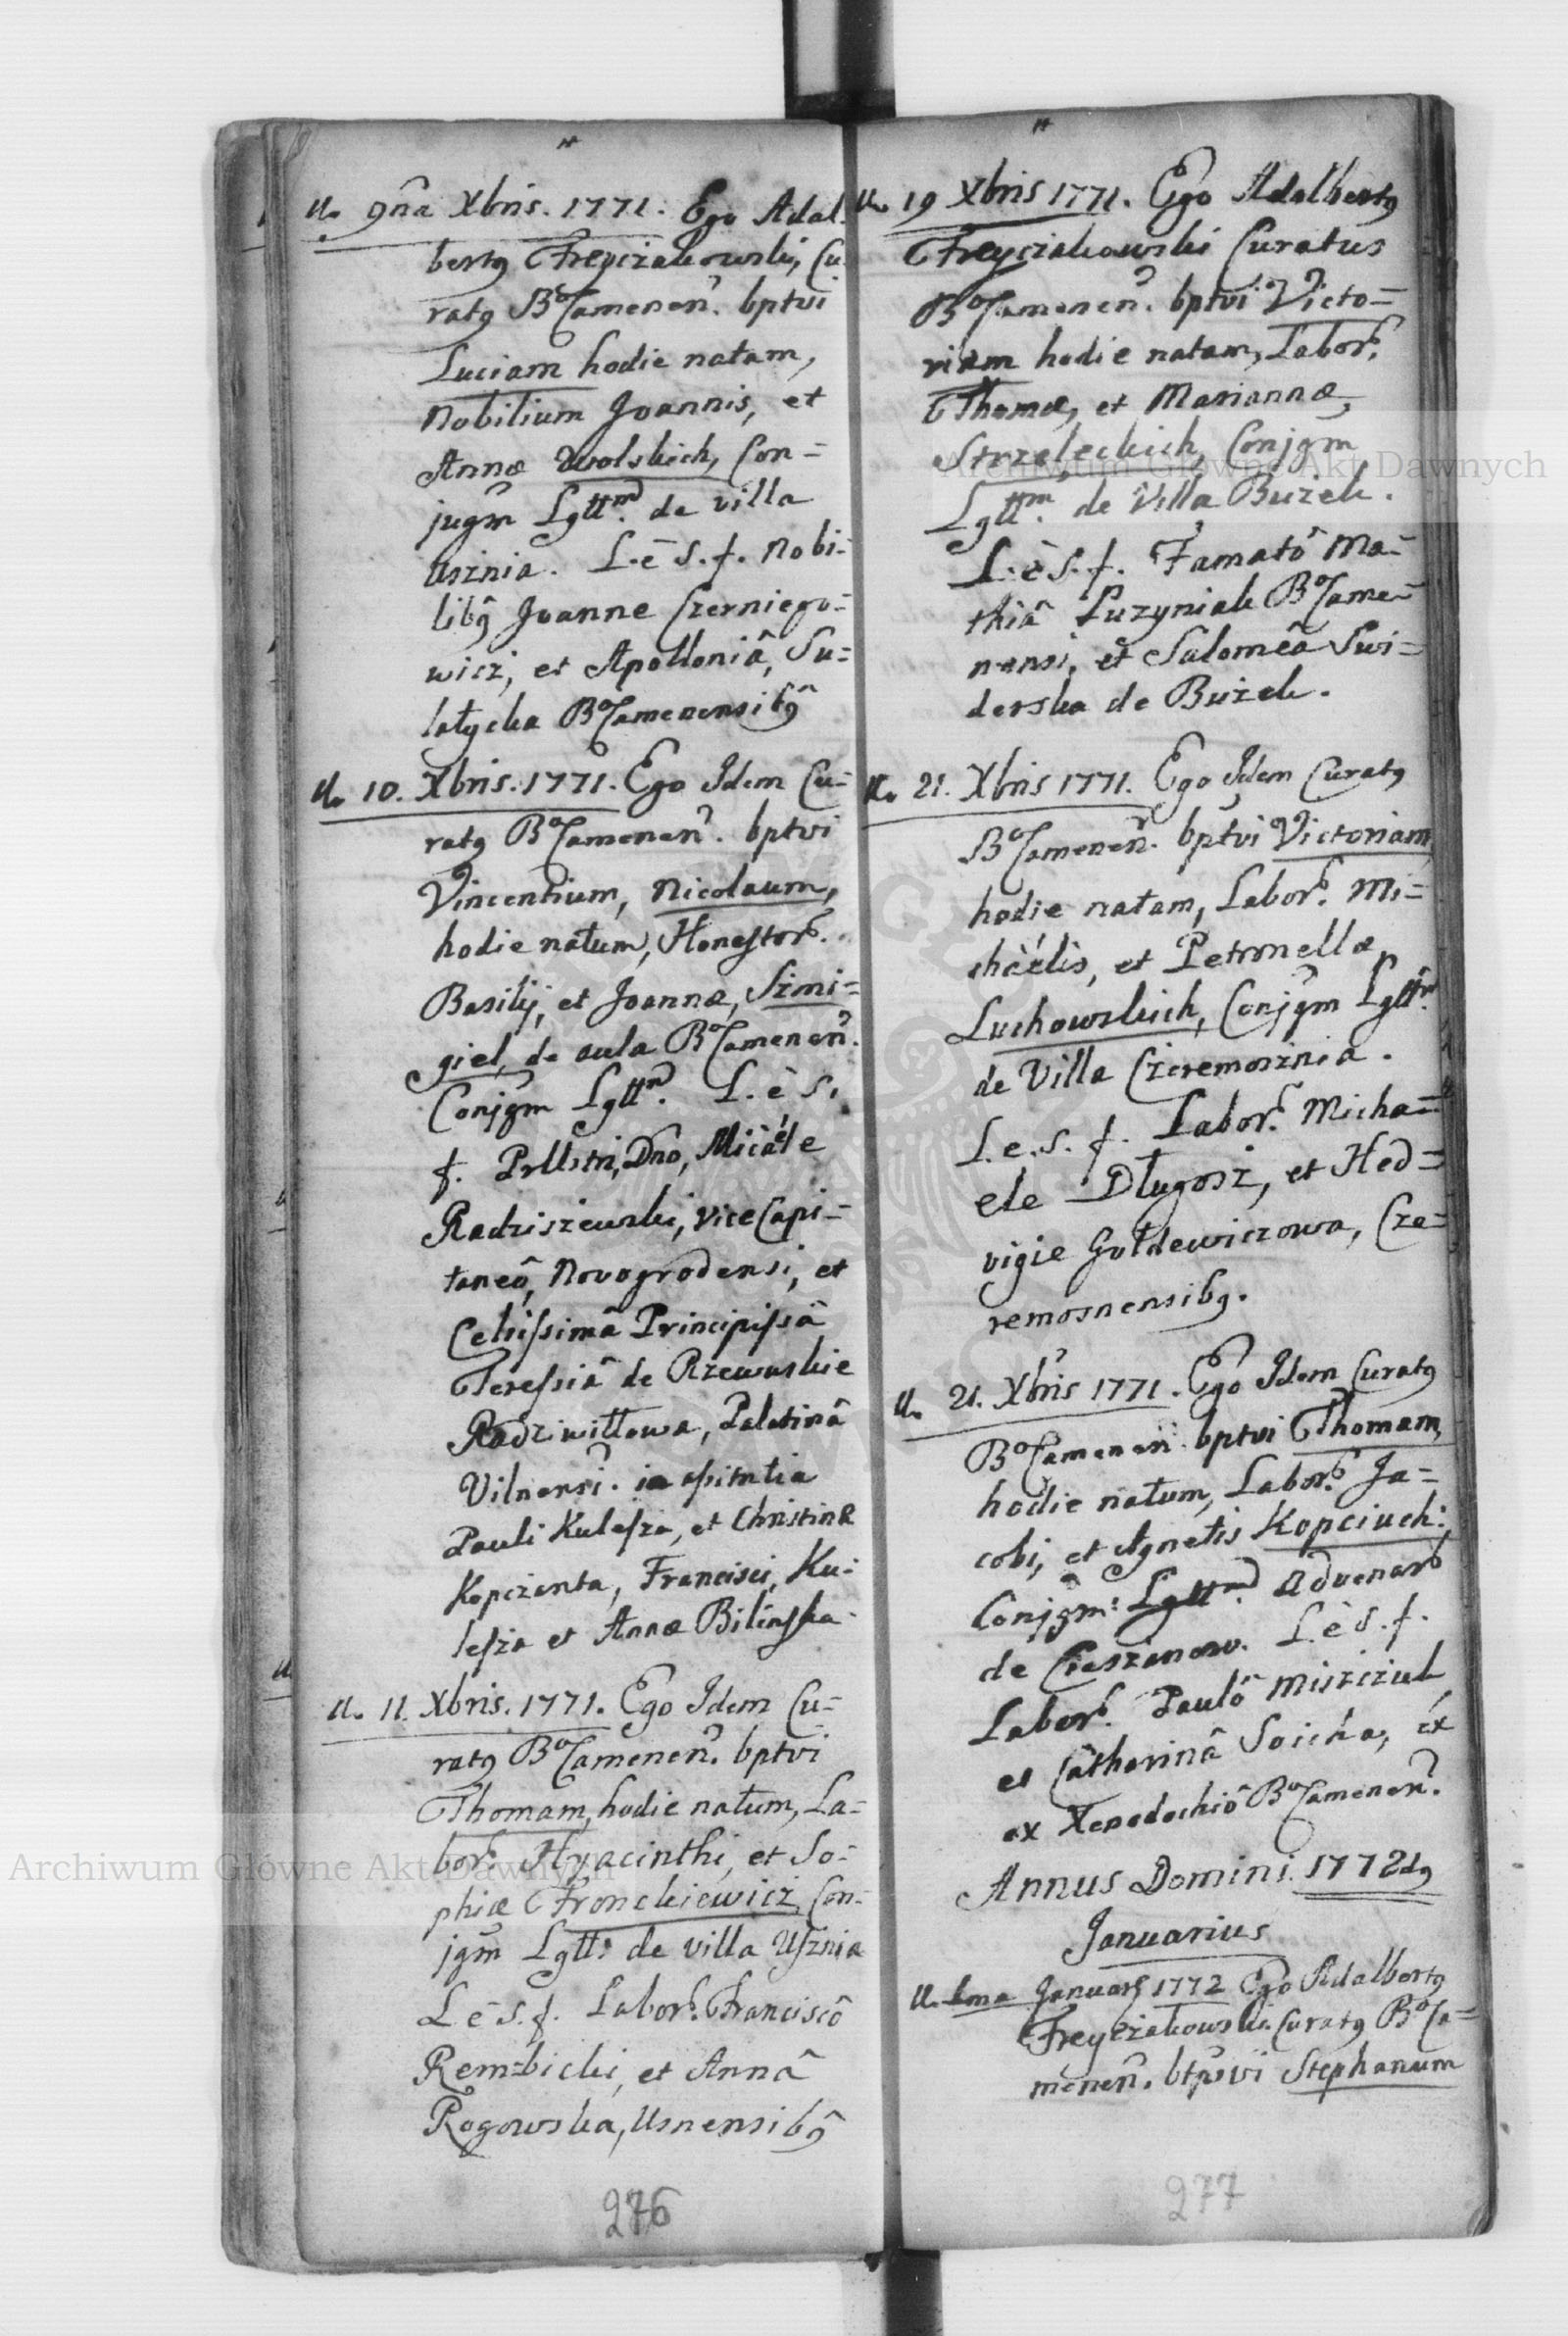 U. 9na Xbris. 1771. Ego Adal-
bertg Treyczakowski, Cu
ratg BoCamenen. bptvi
Luciam hodie natam,
Nobilium Joannis, et
Annæ Wolskich, Con=
jugm Lgttm. de villa
Usznia. L. è S. f. Nobi=
libg Joanne Czerniego=
wicz, et Apolloniâ, Su=
latycka BoCamenensibg
U. 10. Xbris. 1771. Ego Idem Cu=
ratg BoCamenen. bptvi
Vincentium, Nicolaum,
hodie natum, Honestor.
Basilij, et Joannæ, Szmi=
giel, de aula BoCamenen.
Conjgm Lgttm. L. è S.
f. Prllstri, Dno, Micaéle
Radziszewski, Vice Capi=
taneô, Novogrodensi, et
Celsissimâ Principissâ
Teressiâ de Rzewuskie
Radziwiłłowa, Palatinâ
Vilnensi. in assistntia
Pauli Kulesza, et Christinæ
Kopczanta, Francisci, Ku=
lesza et Annæ Bilinska.
U. 11. Xbris. 1771. Ego Idem Cu=
ratg BoCamenen. bptvi
Thomam, hodie natum, La=
bor. Hyacinthi, et So=
phiæ Fronckiewicz, Con=
jgm Lgtt. de villa Usznia
L è S. f. Labor. Franciscô
Rembicki, et Annâ
Rogowska, Usnensibg
276
U. 19 Xbris 1771. Ego Adalbertg
Treyczakowski Curatus
BoCamenen. bptvi Victo=
riam hodie natam, Labor.
Thomæ, et Mariannæ,
Strzeleckich, Conjgm
Lgttm. de Villa Bużek.
L. è S. f. Famatô Ma=
thiâ Puzyniak BoCame=
nensi, et Saloméa Swi=
derska de Bużek.
U. 21. Xbris 1771. Ego Idem Curatg
BoCamenen. bptvi Victoriam
hodie natam, Labor. Mi=
chaélis, et Petronellæ,
Luchowskich, Conjgm Lgttm.
de Villa Czeremosznia.
L. e. S. f. Labor. Micha=
ele Długosz, et Hed=
vigie Gołdewiczowa, Cze=
remosnensibg.
U. 21. Xbris 1771. Ego Idem Curatg
BoCamenen. bptvi Thomam,
hodie natum, Labor. Ja=
cobi, et Agnetis Kopciuch:
Conjgm: Lgttm. Advenar
de Cieszanow. L. è S. f.
Labor. Paulô Misziziul
et Catharinâ Soicha, ex
ex Xenodochiô BoCamenen.
Annus Domini. 1772dg
Januarius
U. 1ma Januar 1772 Ego Adalbertg
Treyczakowski Curatg BoCa=
menen. btpvi Stephanum
277
Archiwum Główne Akt Dawnych
Archiwum Główne Akt Dawnych